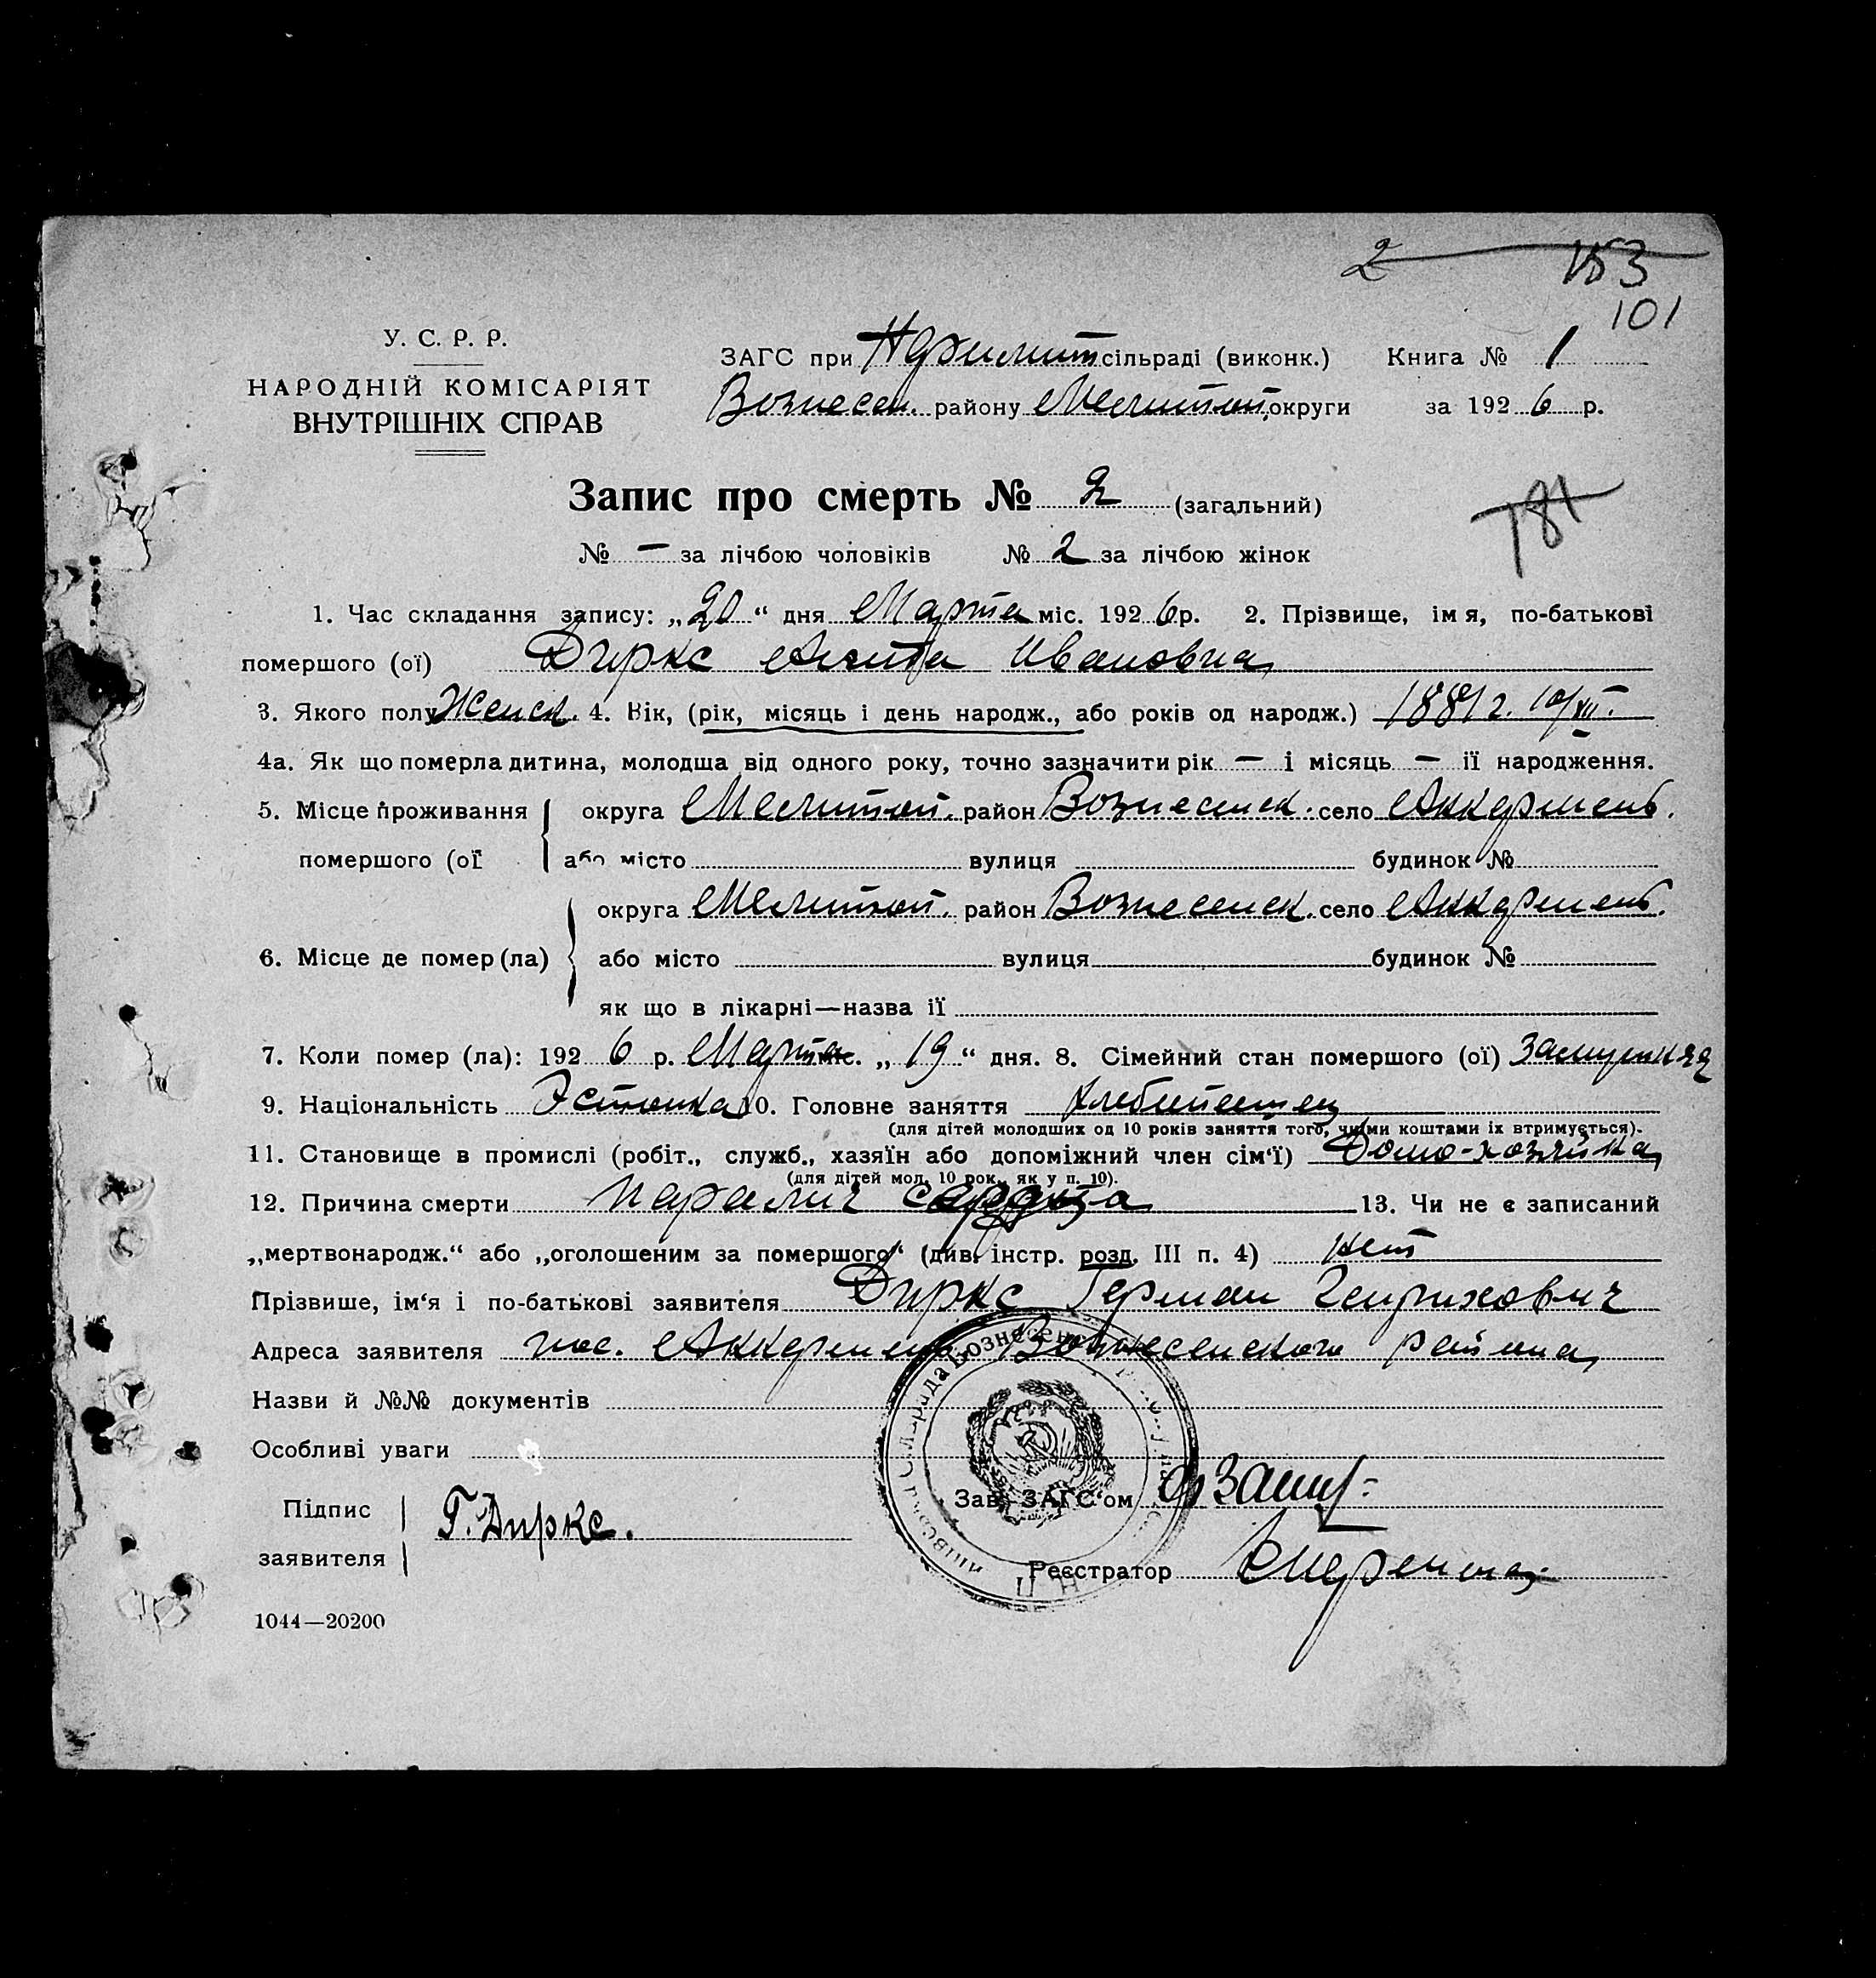 2 153
101
У. С. Р. Р.
НАРОДНІЙ КОМІСАРІЯТ
ВНУТРІШНІХ СПРАВ
ЗАГС при сільраді (виконк.) Книга № 1
Вознесен. району Мелитоп. округи за 1926 р.
Запис про смерть № 2 (загальний)
781
№ — за лічбою чоловіків № 2 за лічбою жінок
1. Час складання запису: „20“ дня Марта міс. 1926 р. 2. Прізвище, імя, по-батькові
помершого (ої) Диркс Ивановна
3. Якого полу Женск. 4. Вік, (рік, місяць і день народж., або років од народж.) 1881 г. 10/XII.
4а. Як що померла дитина, молодша від одного року, точно зазначити рік — і місяць — її народження.
5. Місце проживання округа Мелитоп. район Вознесенск. село Аккермень.
помершого (ої або місто вулиця будинок №
округа Мелитоп. район Вознесенск. село Аккермень.
6. Місце де помер (ла) або місто вулиця будинок №
як що в лікарні—назва її
7. Коли помер (ла): 1926 р. Марта міс. „19“ дня. 8. Сімейний стан помершого (ої) Замужняя
9. Національність Эстонка 10. Головне заняття Хлебопашец
(для дітей молодших од 10 років заняття того, чиїми коштами їх втримується).
11. Становище в промислі (робіт., служб., хазяїн або допоміжний член сім‘ї) Домо-хозяйка
(для дітей мол. 10 рок., як у п. 10).
12. Причина смерти Паралич сердца 13. Чи не є записаний
„мертвонародж.“ або „оголошеним за помершого“ (див. інстр. розд. III п. 4) нет
Прізвише, ім‘я і по-батькові заявителя Диркс Герман Генрихович
Адреса заявителя пос. Аккермень Вознесенского района
Назви й №№ документів
Особливі уваги
Підпис
заявителя Г. Диркс.
Зав. ЗАГС‘ом
Реєстратор
1044—20200